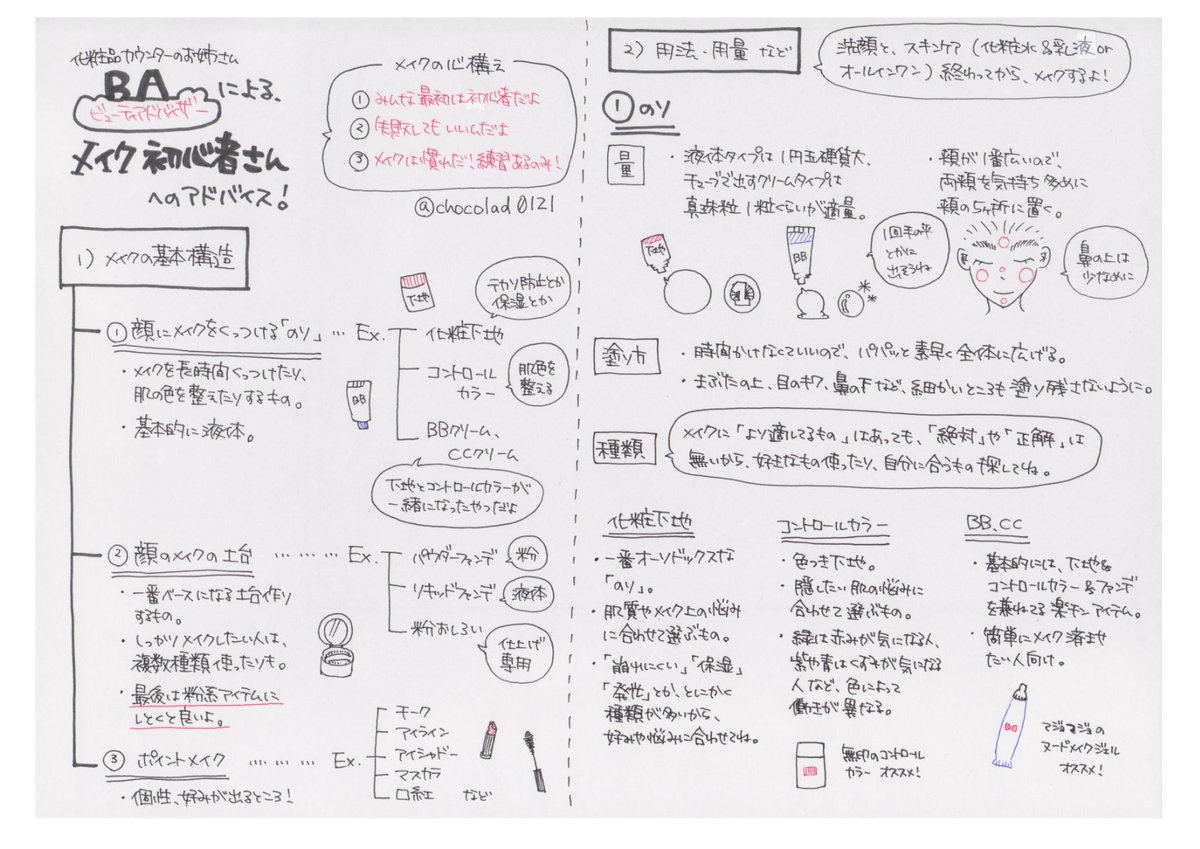 化粧品カウンターのお姉さん
BAによる、
ビューティアドバイザー
メイク初心者さん
へのアドバイス!
メイクの心構え
① みんな最初は初心者だよ
② 失敗してもいいんだよ
③ メイクは慣れだ!練習あるのみ!
@chocolad0121
1) メイクの基本構造
① 顔にメイクをくっつける「のり」… Ex.
・メイクを長時間くっつけたり、
肌の色を整えたりするもの。
・基本的に液体。
下地
テカリ防止とか
保湿とか
化粧下地
コントロール
カラー
肌色を
整える
BB
BBクリーム、
CCクリーム
下地とコントロールカラーが
一緒になったやつだよ
② 顔のメイクの土台 ……… Ex.
・一番ベースになる土台作り
するもの。
・しっかりメイクしたい人は、
複数種類使ったりも。
・最後は粉系アイテムに
しとくと良いよ。
パウダーファンデ
粉
リキッドファンデ
液体
粉おしろい
仕上げ
専用
③ ポイントメイク ……… Ex.
・個性、好みが出るところ!
チーク
アイライン
アイシャドー
マスカラ
口紅 など
2) 用法・用量 など
洗顔と、スキンケア(化粧水&乳液or
オールインワン)終わってから、メイクするよ!
① のり
量
・液体タイプは1円玉硬貨大、
チューブで出すクリームタイプは
真珠粒1粒くらいが適量。
・頬が1番広いので、
両頬を気持ち多めに
顔の5ヶ所に置く。
下地
BB
1回手の平
とかに
出そうね
鼻の上は
少なめに
塗り方
・時間かけなくていいので、パパッと素早く全体に広げる。
・まぶたの上、目のキワ、鼻の下など、細かいところも塗り残さないように。
種類
メイクに「より適してるもの」はあっても、「絶対」や「正解」は
無いから、好きなもの使ったり、自分に合うもの探してね。
化粧下地
・一番オーソドックスな
「のり」。
・肌質やメイク上の悩み
に合わせて選ぶもの。
・「崩れにくい」「保湿」
「発色」とか、とにかく
種類が多いから、
好みや悩みに合わせてね。
コントロールカラー
・色つき下地。
・隠したい肌の悩みに
合わせて選ぶもの。
・緑は赤みが気になる人、
紫や青はくすみが気になる
人など、色によって
働きが異なる。
無印のコントロール
カラー オススメ!
BB、CC
・基本的には、下地&
コントロールカラー&ファンデ
を兼ねてる楽チンアイテム。
・簡単にメイク済ませ
たい人向け。
マジョマジョの
ヌードメイクジェル
オススメ!